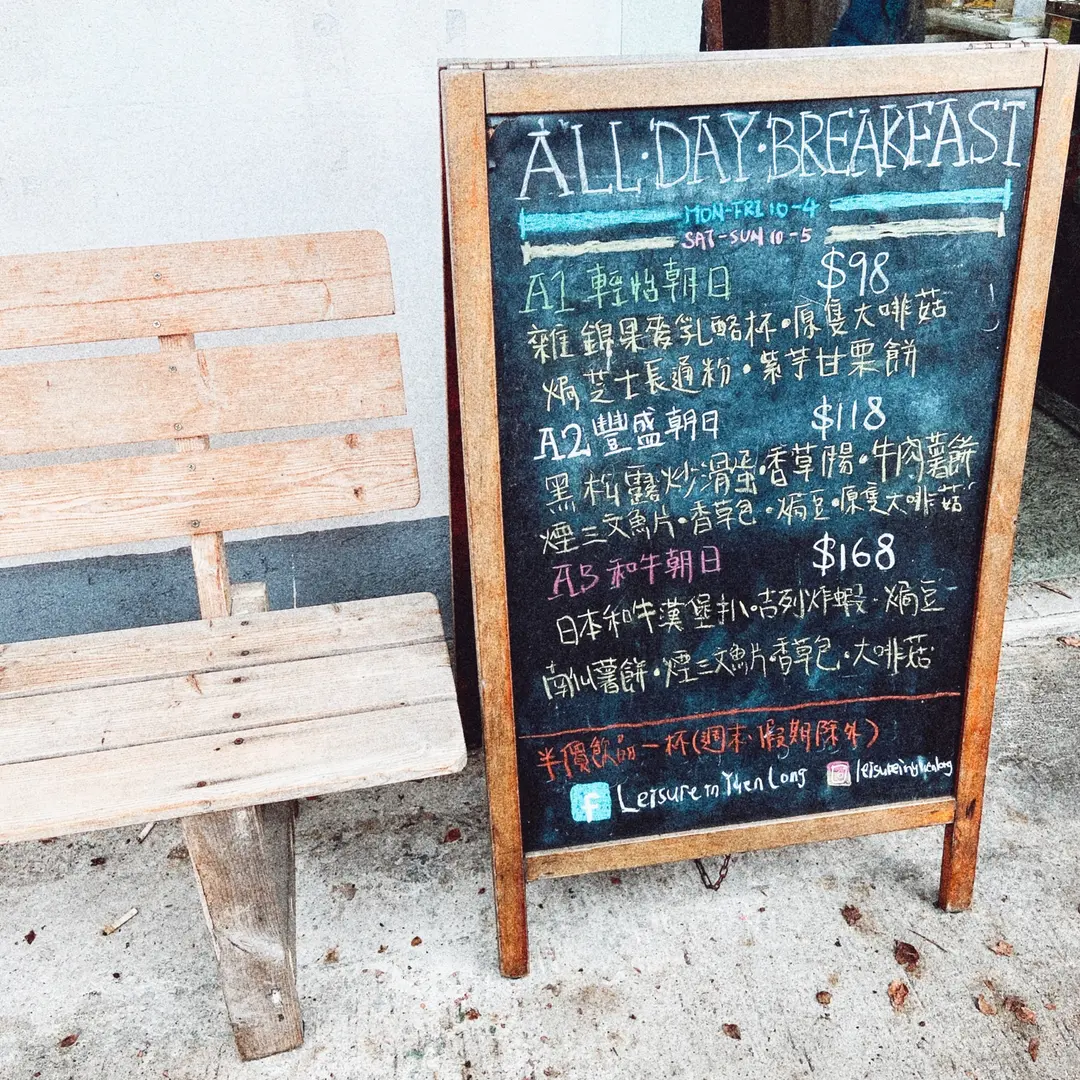 ALL·DAY·BREAKFAST
MON-FRI 10-4
SAT-SUN 10-5
A1 輕怡朝日 $98
雜錦果麥乳酪杯·原隻大啡菇
焗芝士長通粉·紫芋甘栗餅
A2 豐盛朝日 $118
黑松露炒滑蛋·香草腸·牛肉薯餅
煙三文魚片·香草包·焗豆·原隻大啡菇
A3 和牛朝日 $168
日本和牛漢堡扒·吉列炸蝦·焗豆
南瓜薯餅·煙三文魚片·香草包·大啡菇
半價飲品一杯(週末·假期除外)
f Leisure in Yuen Long leisureinyuenlong